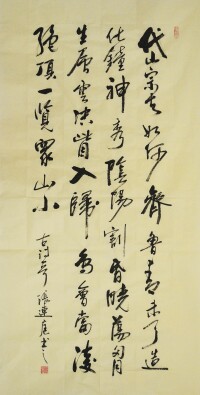 岱宗夫如何齊魯青未了造
化鐘神秀陰陽割昏曉蕩胸
生層雲決眥入歸鳥會當凌
絶頂一覽眾山小
古詩